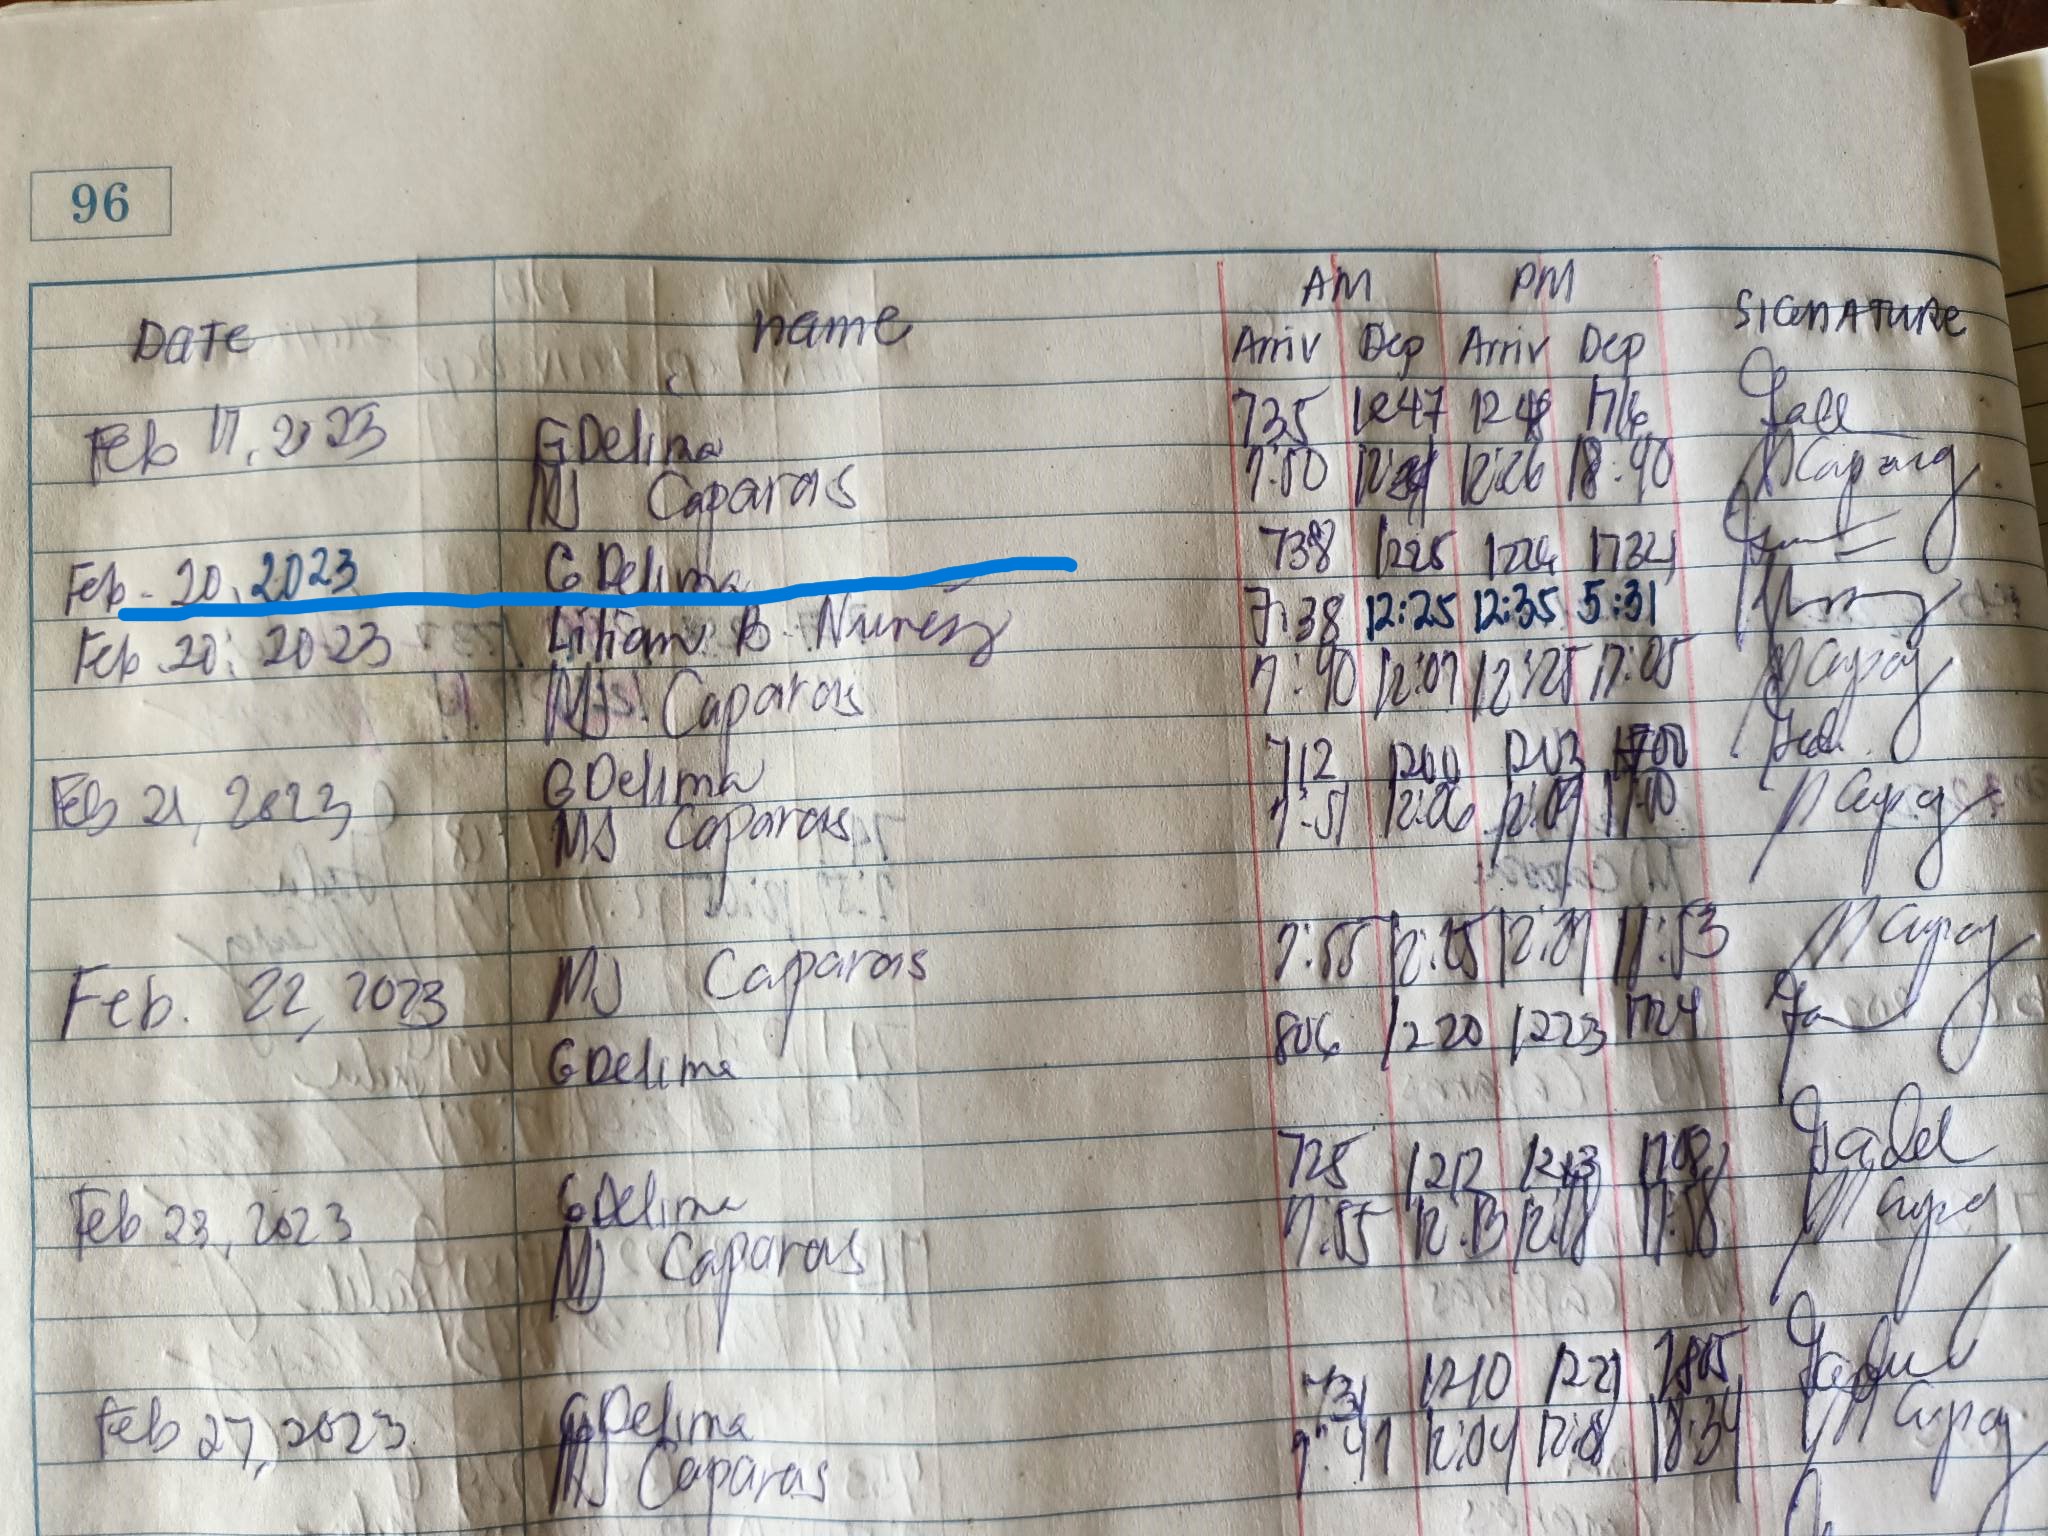 96
AM PM
DATE name Arriv Dep Arriv Dep SIGNATURE
Feb 17, 2023 G Delima 735 1247 1248 1716
MJ Caparas 7:50 12:26 18:40
Feb - 20, 2023 G Delima 738 1225 1226
Feb 20: 2023 Lilian B. Nunez 7:38 12:25 12:35 5:31
MJ Caparas 7:40 12:07 12:25 17:05
Feb 21, 2023 G Delima 712 1200 1203 1700
MJ Caparas 7:51 12:06 12:09 17:00
Feb. 22, 2023 MJ Caparas 7:55 12:05 17:53
G Delima 806 1220 1223 1724
Feb 23, 2023 G Delima 725 1212 1213 1708
MJ Caparas 7:55 12:13 12:18 17:58
Feb 27, 2023 G Delima 731 1210 1221 1805
MJ Caparas 7:41 12:04 12:08 18:34